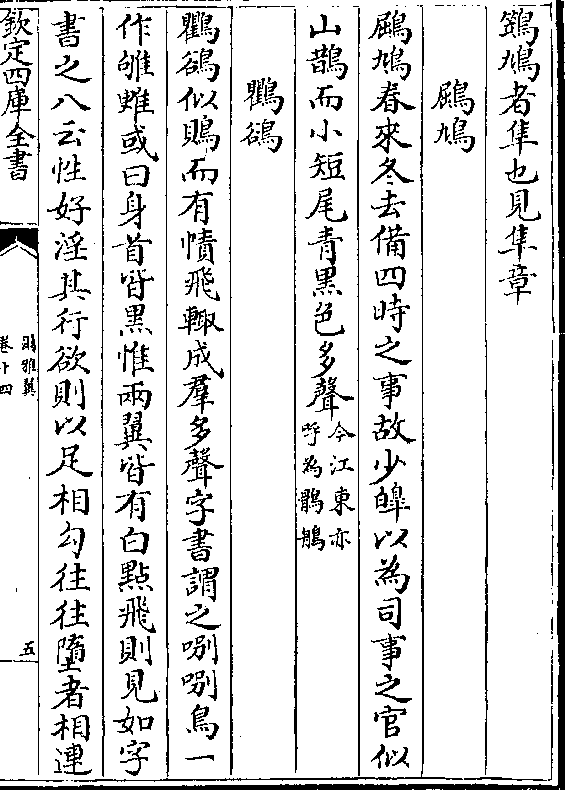 鵕鳩者隼也見隼章
鶌鳩
鶌鳩春來冬去備四時之事故少皥以為司事之官似
山鵲而小短尾青黑色多聲今江東亦呼為鶻鵃
鸜鵒
鸜鵒似鵙而有幘飛輒成羣多聲字書謂之唎唎鳥一
作雊雖或曰身首皆黑惟兩翼皆有白點飛則見如字
書之八云性好淫其行欲則以足相勾往往墮者相連
欽定四庫全書
爾雅翼
卷十四
五